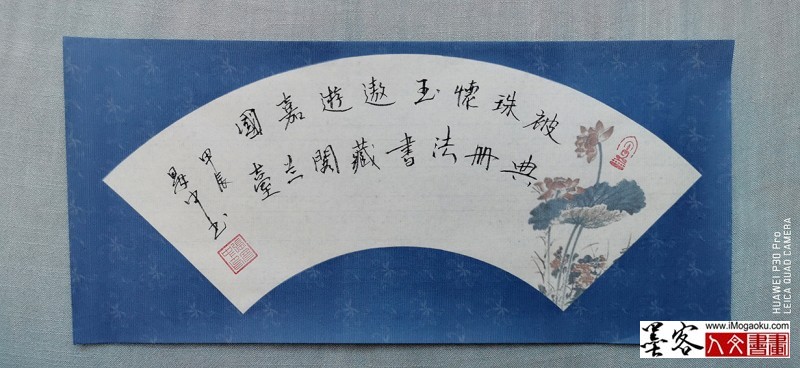 被珠懷玉遨遊嘉國
典冊法書藏閣兰臺
甲辰
书
HUAWEI P30 Pro
LEICA QUAD CAMERA
墨客
www.iMogaoku.com
人文書畫